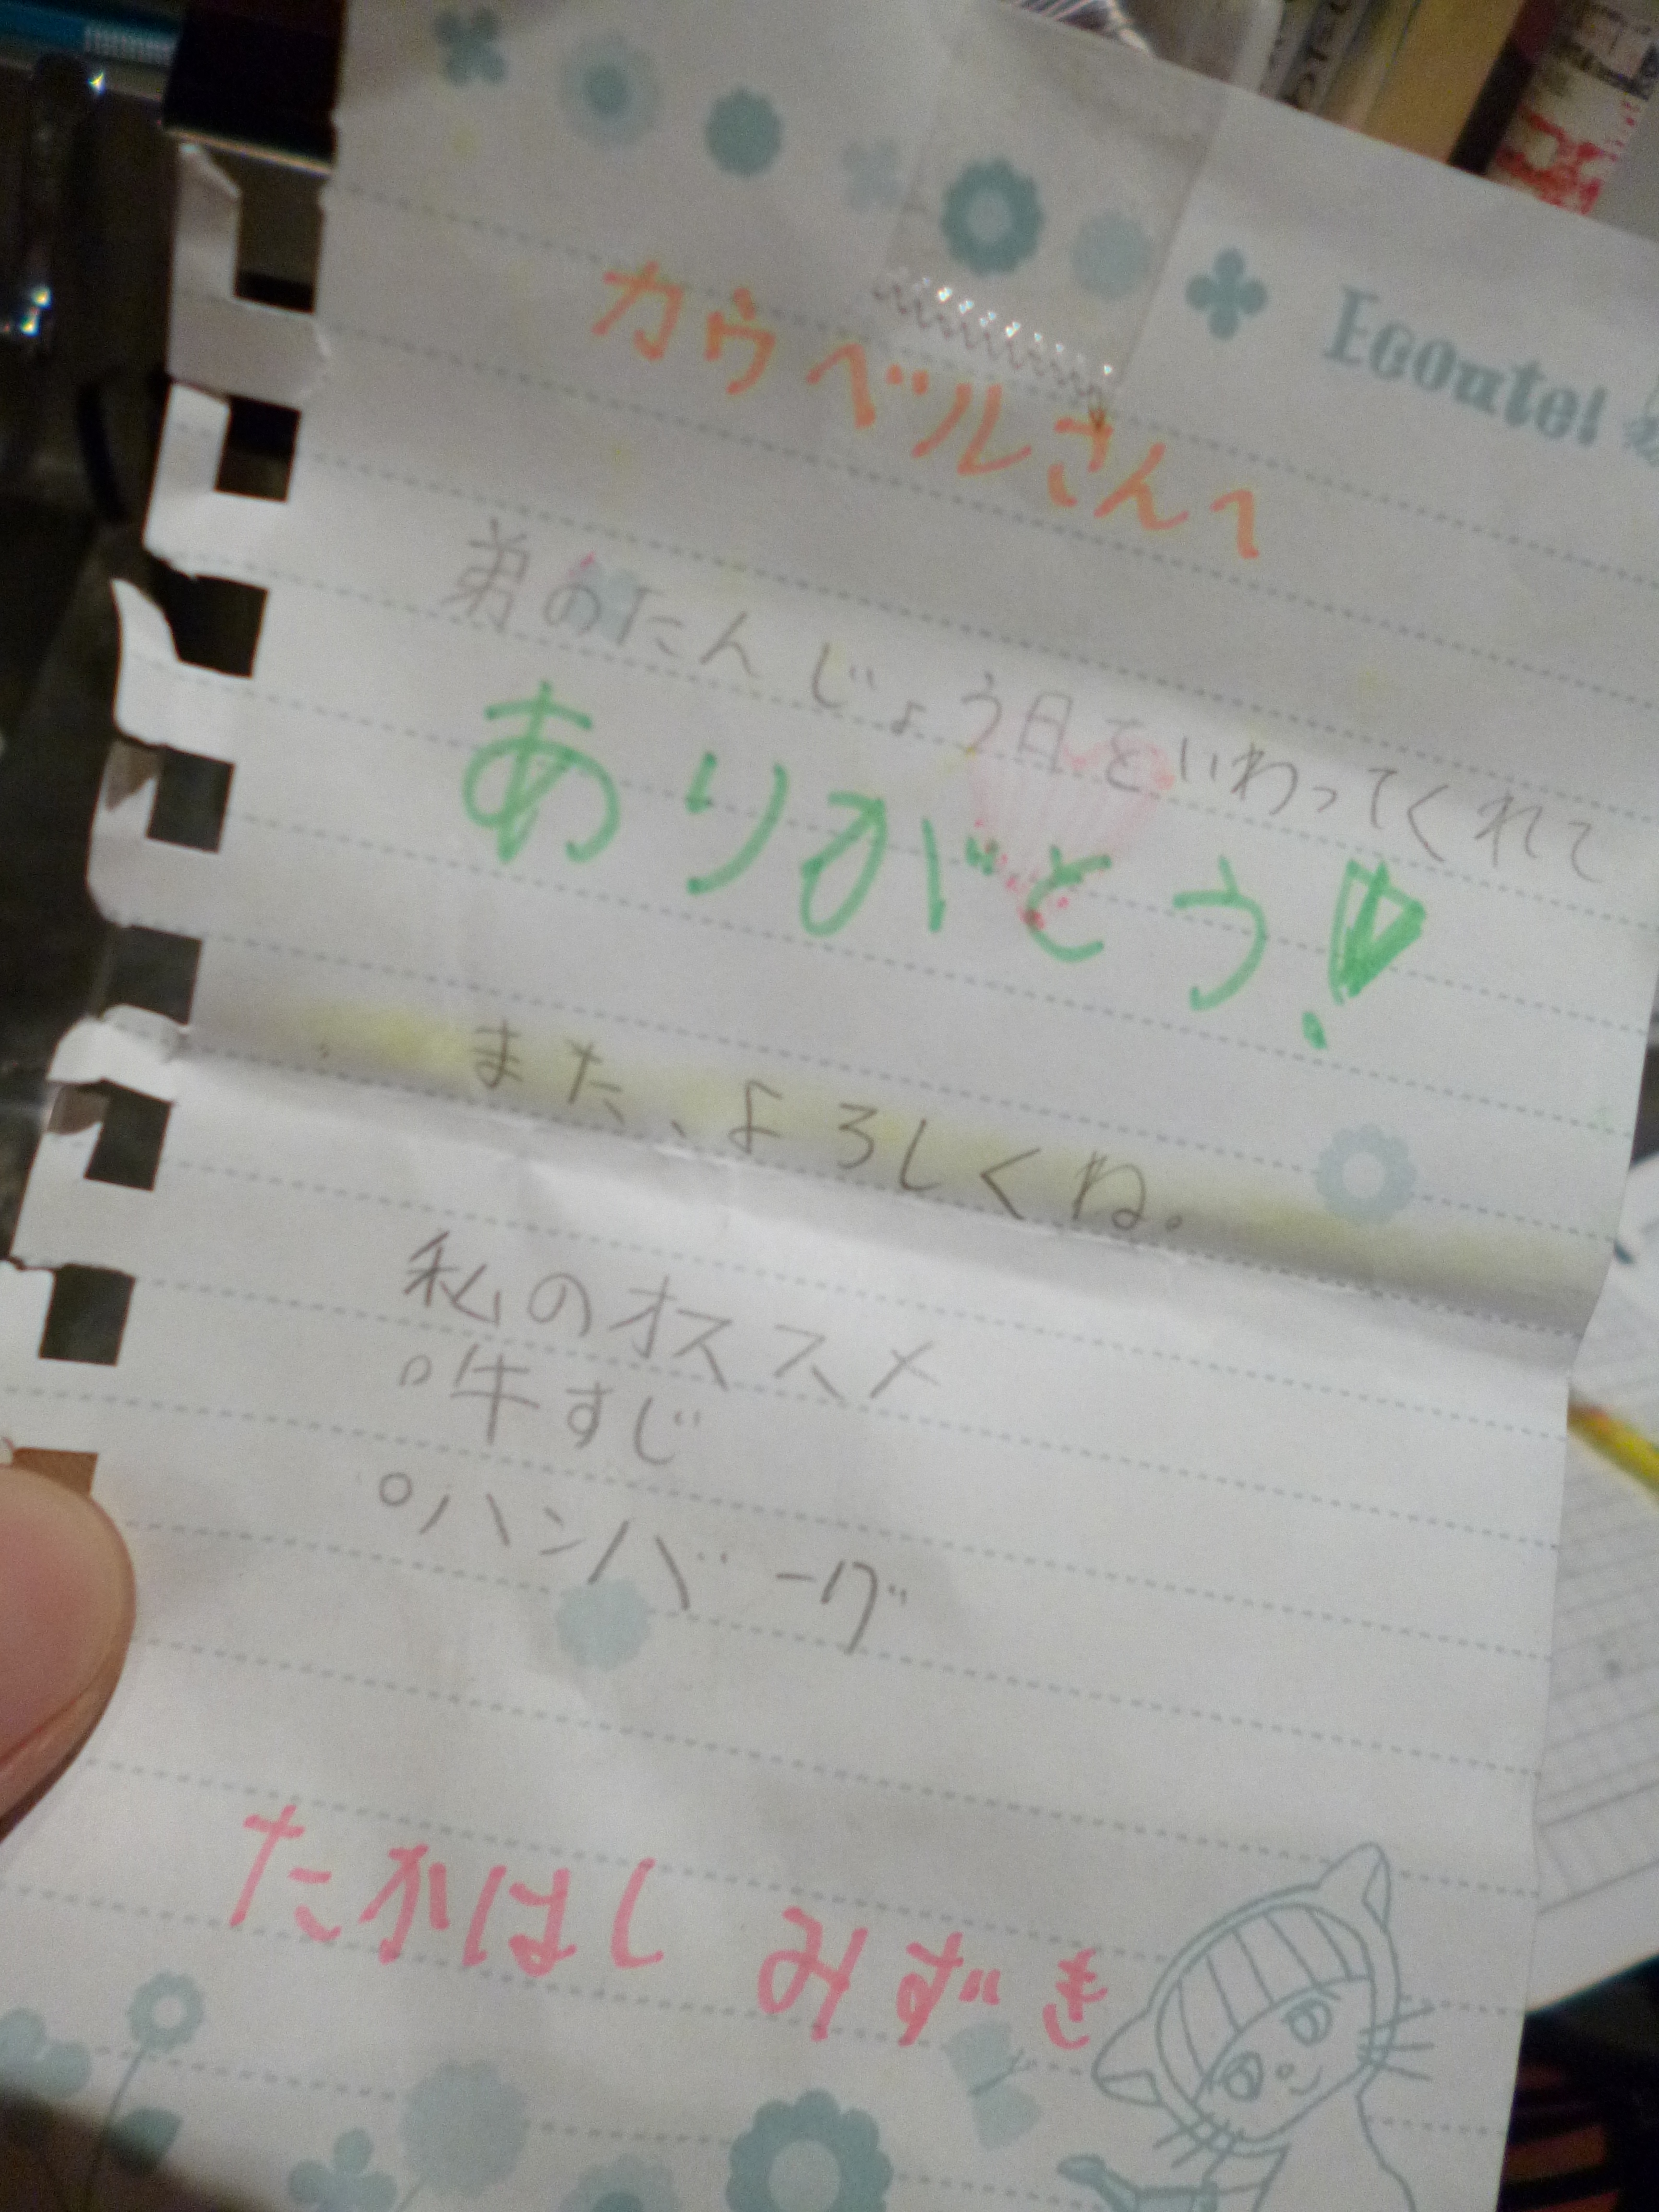 Ecoute!
カウベルさんへ
弟のたんじょう日をいわってくれて
ありがとう!
また、よろしくね。
私のオススメ
°牛すじ
°ハンバーグ
たかはし みずき